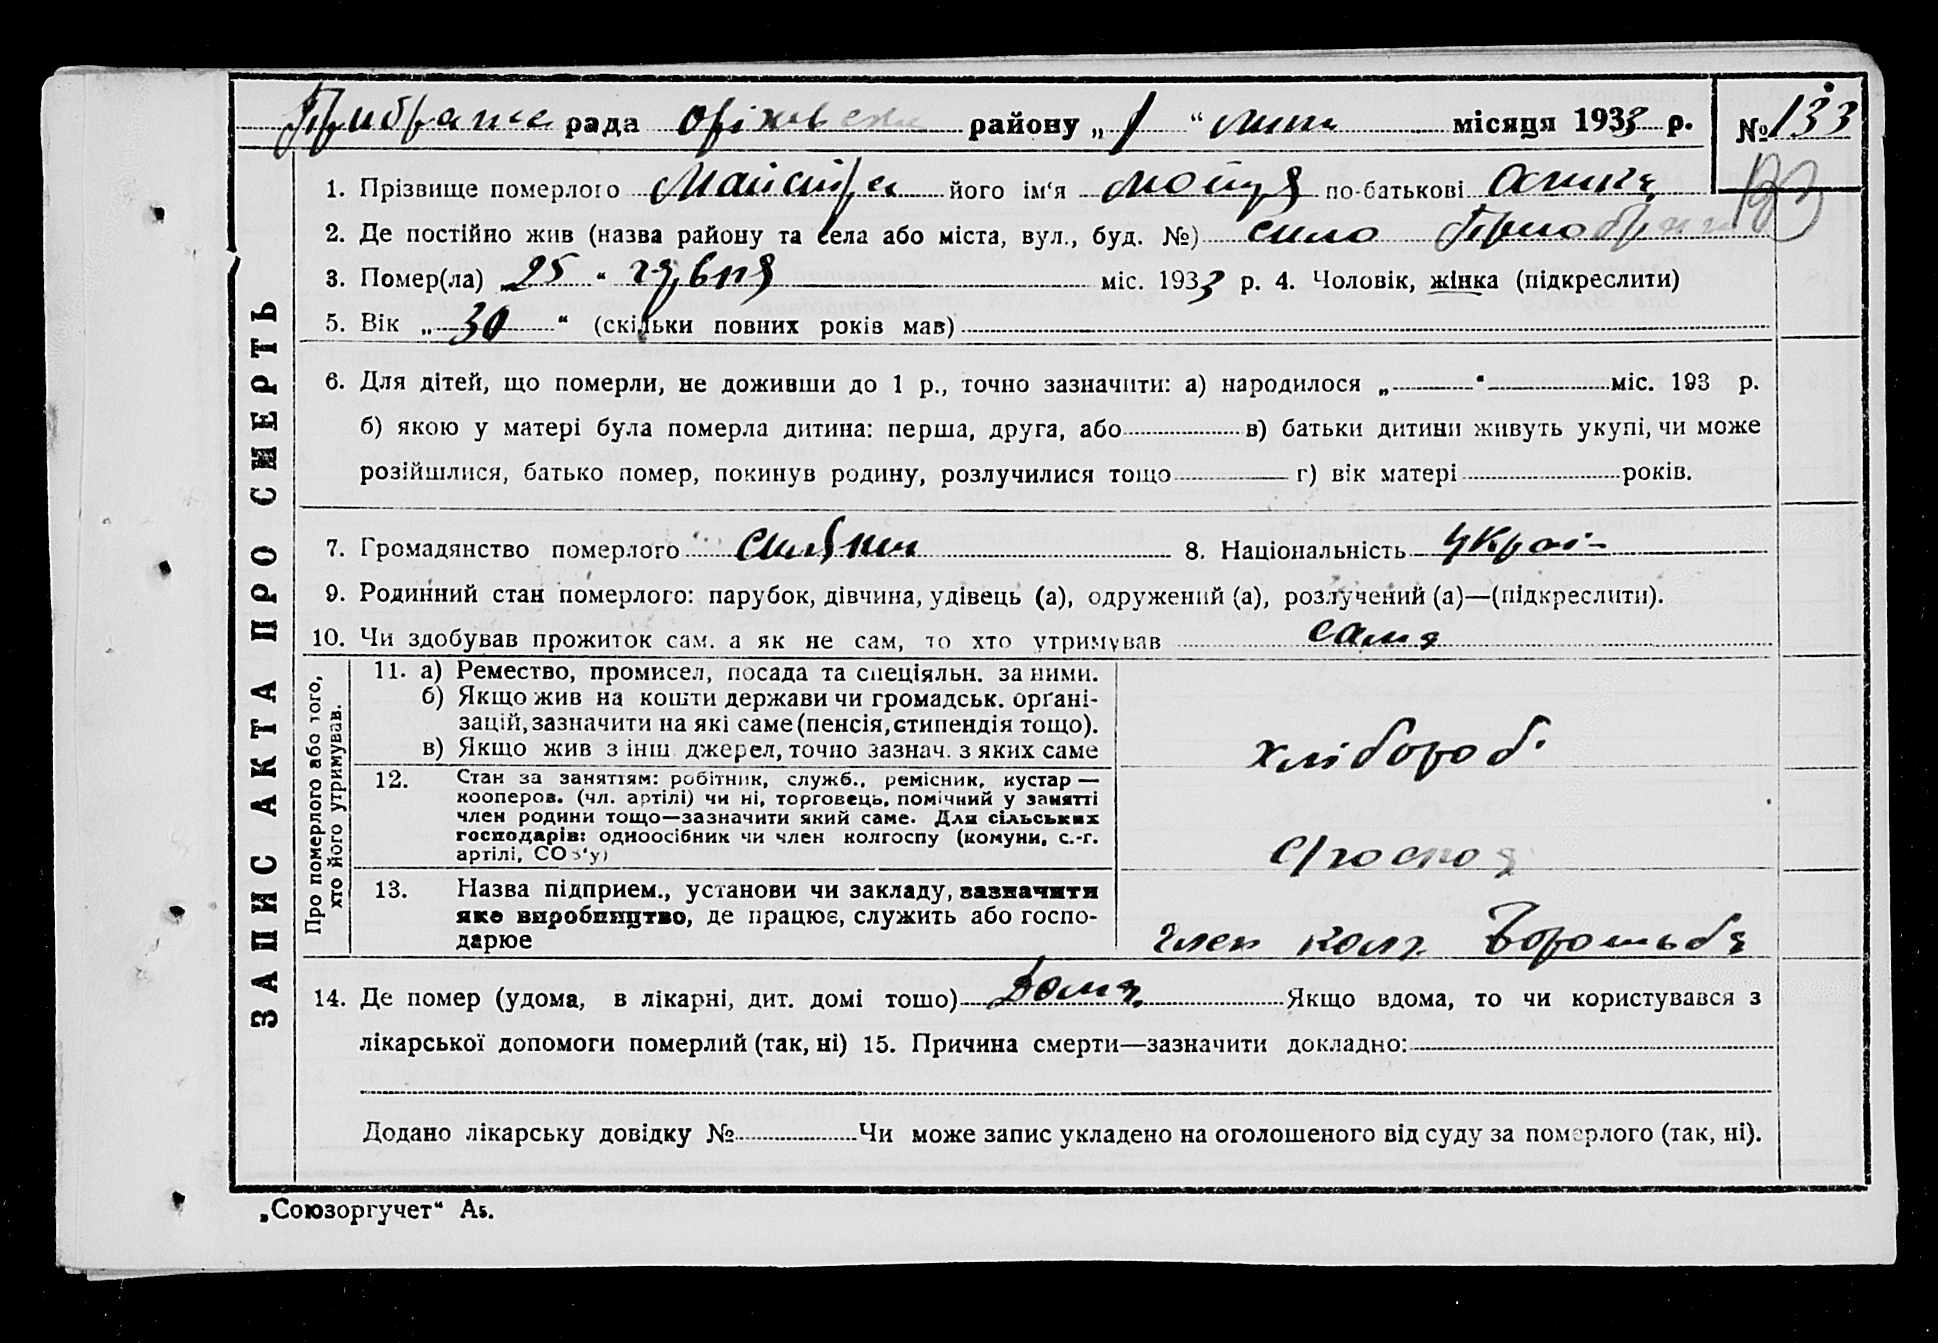 рада району „ 1 “ місяця 1933 р. № 133
1. Прізвище померлого його ім'я по-батькові
2. Де постійно жив (назва району та села або міста, вул., буд. №) село
3. Помер(ла) „ 25 “ червня міс. 1933 р. 4. Чоловік, жінка (підкреслити)
5. Вік „ 30 “ (скільки повних років мав)
6. Для дітей, що померли, не доживши до 1 р., точно зазначити: а) народилося „ “ міс. 193 р.
б) якою у матері була померла дитина: перша, друга, або в) батьки дитини живуть укупі, чи може
розійшлися, батько помер, покинув родину, розлучилися тощо г) вік матері років.
7. Громадянство померлого 8. Національність украї-
9. Родинний стан померлого: парубок, дівчина, удівець (а), одружений (а), розлучений (а)—(підкреслити).
10. Чи здобував прожиток сам. а як не сам, то хто утримував сама
ЗАПИС АКТА ПРО СМЕРТЬ
Про померлого або того,
хто його утримував.
11. а) Ремество, промисел, посада та спеціяльн. за ними.
б) Якщо жив на кошти держави чи громадськ. органі-
зацій, зазначити на які саме (пенсія, стипендія тощо).
в) Якщо жив з інш. джерел, точно зазнач. з яких саме
хлібороб.
12. Стан за заняттям: робітник, служб., ремісник, кустар —
кооперов. (чл. артілі) чи ні, торговець, помічний у занятті
член родини тощо—зазначити який саме. Для сільських
господарів: одноосібник чи член колгоспу (комуни, с.-г.
артілі, СОЗ'у)
13. Назва підприєм., установи чи закладу, зазначити
яке виробництво, де працює, служить або госпо-
дарює
член колг
14. Де помер (удома, в лікарні, дит. домі тошо) Дома Якщо вдома, то чи користувався з
лікарської допомоги померлий (так, ні) 15. Причина смерти—зазначити докладно:
Додано лікарську довідку № Чи може запис укладено на оголошеного від суду за померлого (так, ні).
„Союзоргучет“ А5.